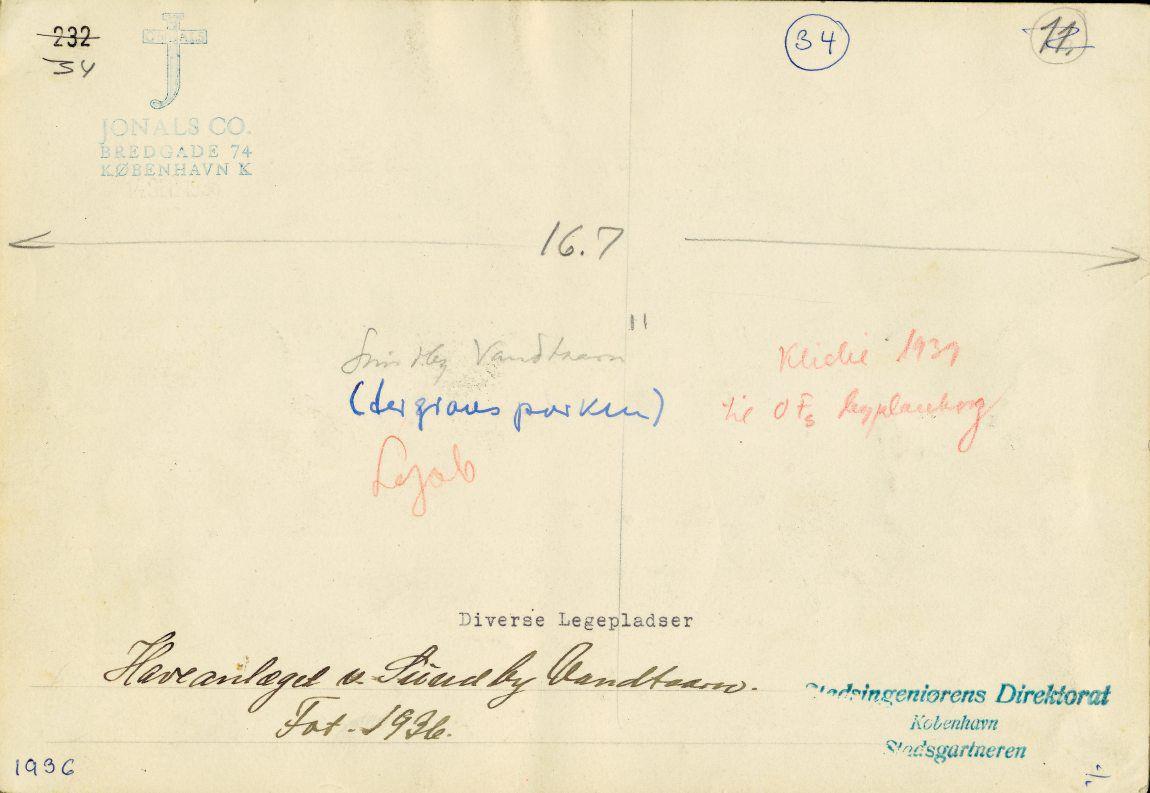 232
34
34
11.
JONALS
JONALS CO.
BREDGADE 74
KØBENHAVN K
16.7
"
Sundby Vandtaarn
Kliché 1939
parken)
til OFs
Diverse Legepladser
Haveanlæget v. Sundby Vandtaarn.
Fot. 1936.
Stadsingeniørens Direktorat
København
Stadsgartneren
1936